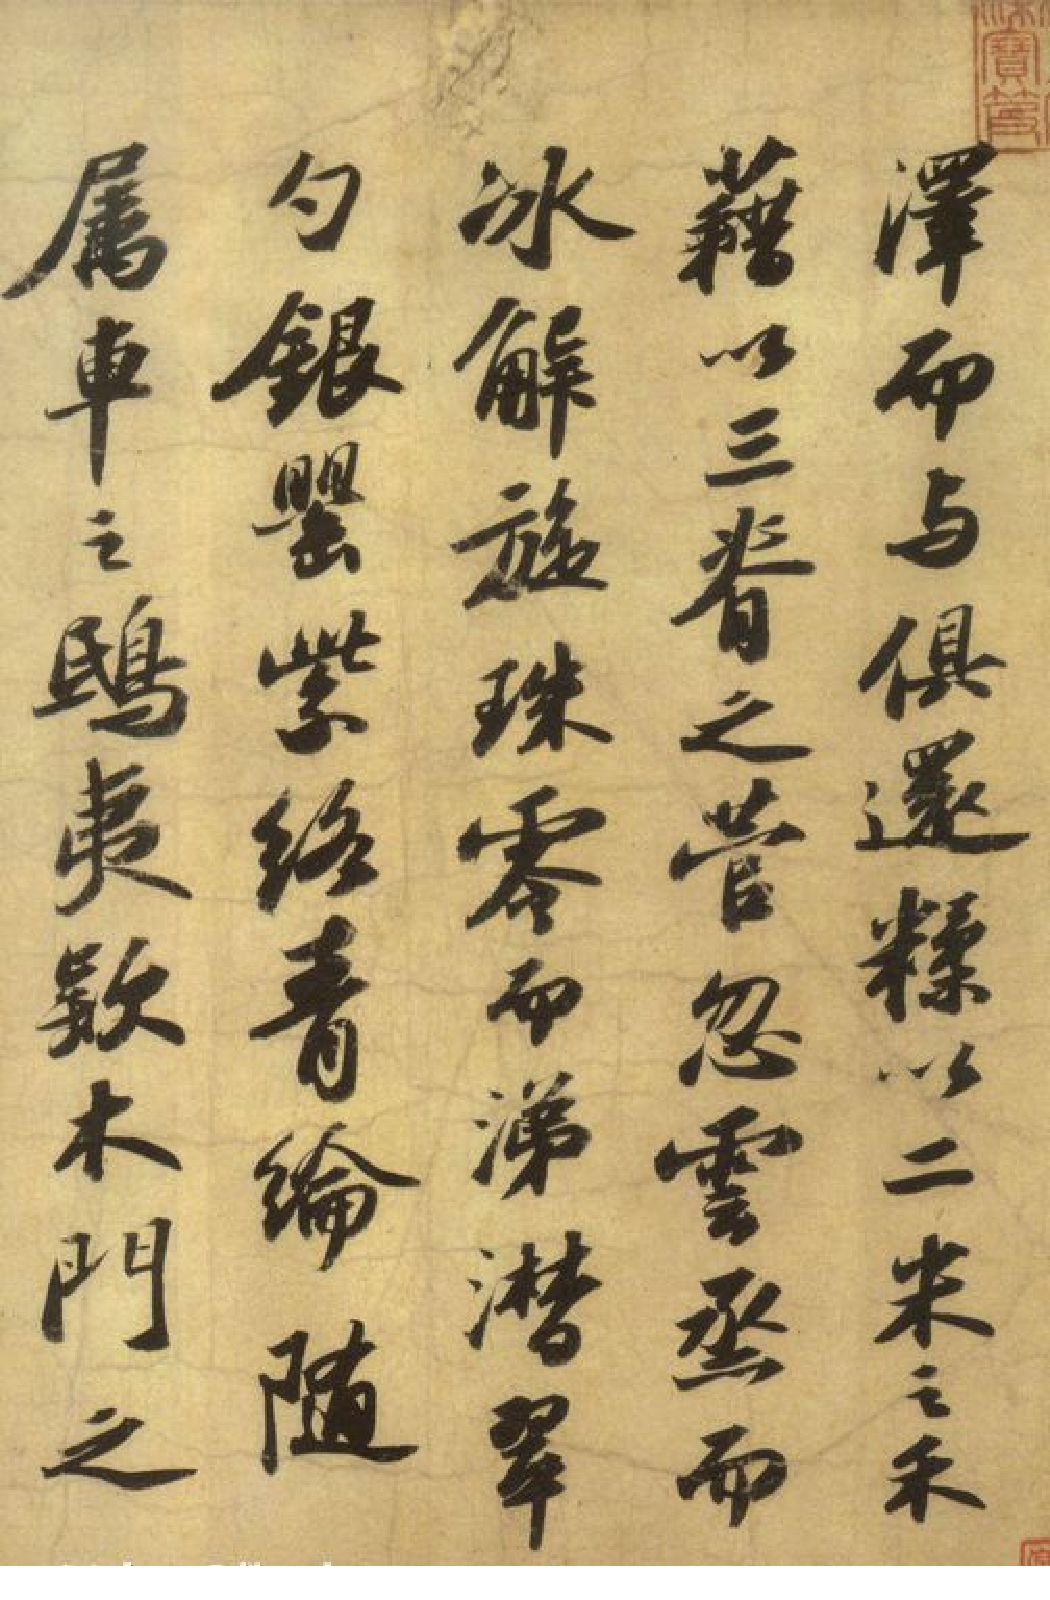 澤而与俱還糅以二米之禾
藉以三脊之菅忽雲烝而
冰解旋珠零而涕潸翠
勺銀罌紫絡青綸隨
属車之鴟夷款木門之